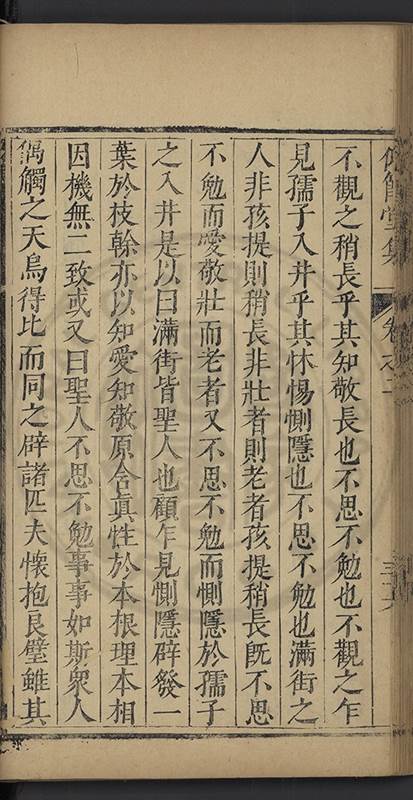 不觀之稍長乎其知敬長也不思不勉也不觀之乍
見孺子入井乎其怵惕惻隱也不思不勉也滿街之
人非孩提則稍長非壯者則老者孩提稍長旣不思
不勉而愛敬壯而老者又不思不勉而惻隱於孺子
之入井是以曰滿街皆聖人也顧乍見惻隱辟發一
葉於枝榦亦以知愛知敬原含眞性於本根理本相
因機無二致或又曰聖人不思不勉事事如斯衆人
偶觸之天烏得比而同之辟諸匹夫懷抱良璧雖其